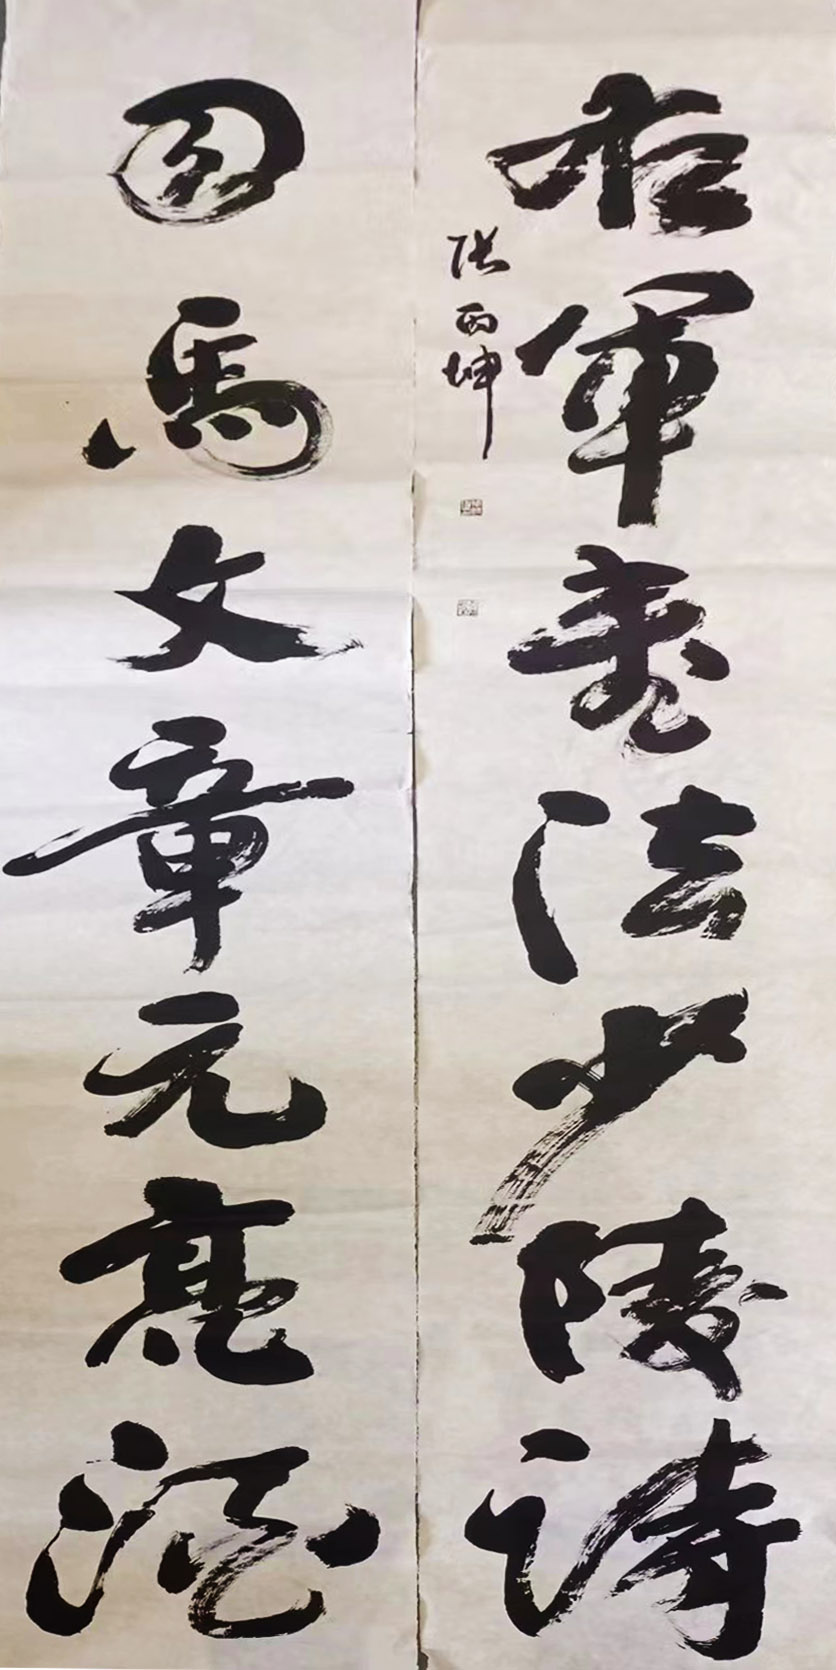 右军书法少陵诗
张丙坤
司马文章元亮酒